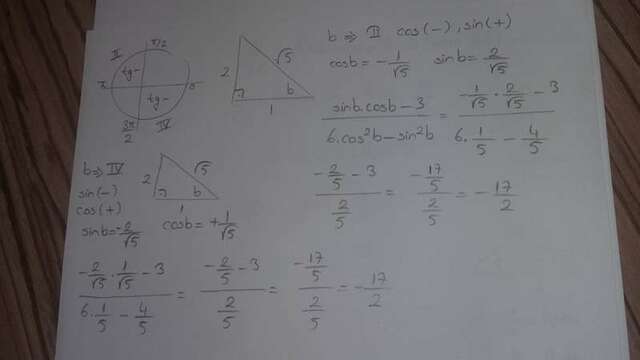 II π/2
tg-
π 0
tg-
3π/2 IV
2 √5
b
1
b ⇒ II cos(-), sin(+)
cosb = -1/√5 sinb = 2/√5
(sinb.cosb - 3)/(6.cos²b - sin²b) = (-1/√5 . 2/√5 - 3)/(6.1/5 - 4/5)
(-2/5 - 3)/(2/5) = (-17/5)/(2/5) = -17/2
b ⇒ IV
sin(-)
cos(+)
2 √5
b
1
sinb = -2/√5 cosb = +1/√5
(-2/√5 . 1/√5 - 3)/(6.1/5 - 4/5) = (-2/5 - 3)/(2/5) = (-17/5)/(2/5) = -17/2